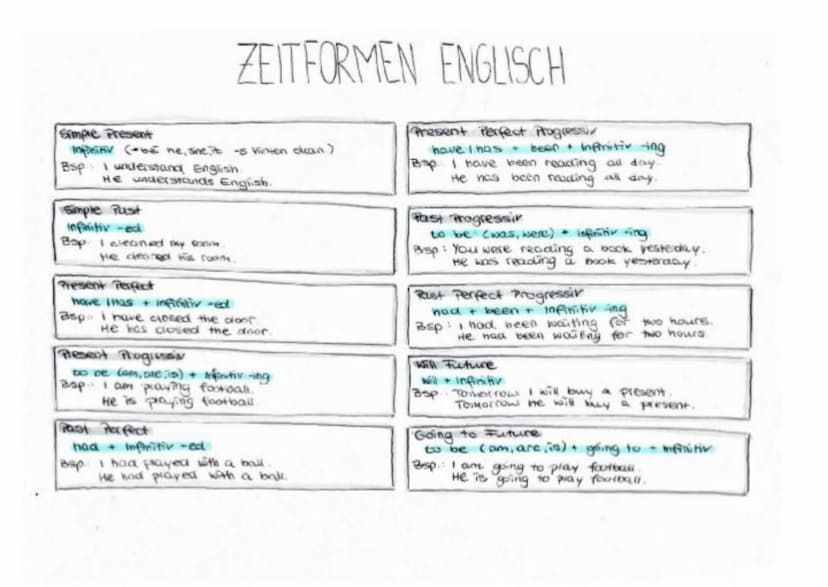 ZEITFORMEN ENGLISCH
Simple Present
Infinitiv (→ bei he, she, it -s hinten dran)
Bsp.: I understand English.
He understands English.
Simple Past
Infinitiv -ed
Bsp.: I cleaned my room.
He cleaned his room.
Present Perfect
have / has + infinitiv -ed
Bsp.: I have closed the door.
He has closed the door.
Present Progressiv
to be (am, are, is) + infinitiv -ing
Bsp.: I am playing football.
He is playing football
Past Perfect
had + infinitiv -ed
Bsp.: I had played with a ball.
He had played with a ball.
Present Perfect Progressiv
have / has + been + infinitiv -ing
Bsp.: I have been reading all day.
He has been reading all day.
Past Progressiv
to be (was, were) + infinitiv -ing
Bsp.: You were reading a book yesterday.
He was reading a book yesterday.
Past Perfect Progressiv
had + been + infinitiv -ing
Bsp.: I had been waiting for two hours.
He had been waiting for two hours.
Will Future
will + infinitiv
Bsp.: Tomorrow I will buy a present.
Tomorrow he will buy a present.
Going to Future
to be (am, are, is) + going to + infinitiv
Bsp.: I am going to play football.
He is going to play football.